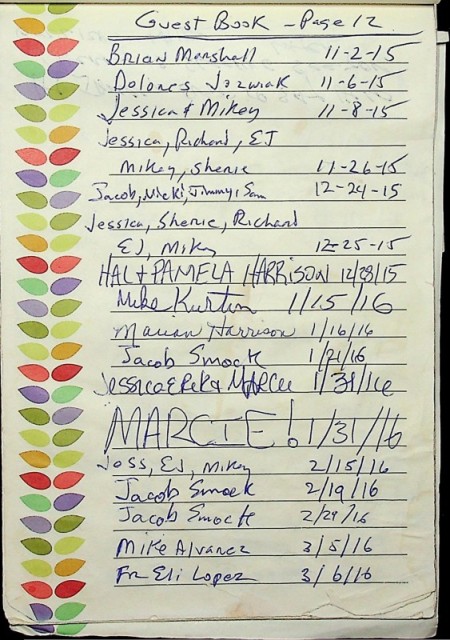 Guest Book - Page 12
Brian Marshall 11-2-15
Dolores Jozwiak 11-6-15
Jessica & Mikey 11-8-15
Jessica, Richard, EJ
Mikey, Sherie 11-26-15
Jacob, Nicki, Jimmy, Sam 12-24-15
Jessica, Sherie, Richard
EJ, Mikey 12-25-15
HAL + PAMELA HARRISON 12/28/15
Mike Kurtin 1/15/16
Marian Harrison 1/16/16
Jacob Smock 1/21/16
Jessica E & Marcie 1/31/16
MARCIE! 1/31/16
Jess, EJ, Mikey 2/15/16
Jacob Smock 2/19/16
Jacob Smock 2/29/16
Mike Alvarez 3/5/16
Fr Eli Lopez 3/6/16